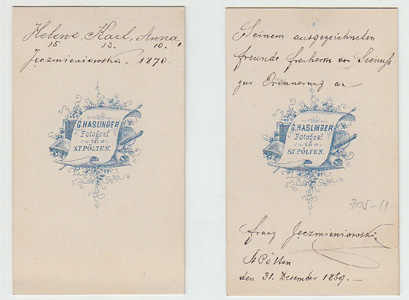 Helene, Karl, Anna
15. 13. 10.
Jeczmieniowska. 1870.
G. HASLINGER
Fotograf
in
ST PÖLTEN.
Seinem ausgezeichneten
Freunde Freiherrn von
zur Erinnerung an
G. HASLINGER
Fotograf
in
ST PÖLTEN.
305-11
Franz Jeczmieniowski
St Pölten
den 31. Dezember 1869.